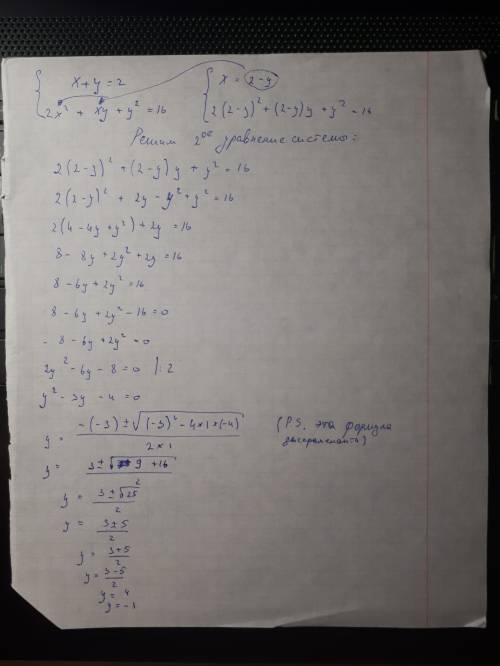 { x+y=2 { x = 2-y
2x² + xy + y² =16 2(2-y)² +(2-y)y + y² =16
Решим 2ое уравнение системы:
2(2-y)² +(2-y) y + y² =16
2(2-y)² + 2y - y² + y² =16
2(4-4y+y²)+2y =16
8- 8y +2y² +2y =16
8-6y+2y² =16
8-6y+2y² -16=0
-8-6y+2y² =0
2y² -6y -8=0 |:2
y² -3y -4=0
y = (-(-3) ± √((-3)² - 4×1×(-4))) / (2×1) (P.S. это формула дискриминанта)
y = (3±√(9 +16)) / 2
y = (3±√25) / 2
y = (3±5) / 2
y = (3+5) / 2
y = (3-5) / 2
y = 4
y = -1